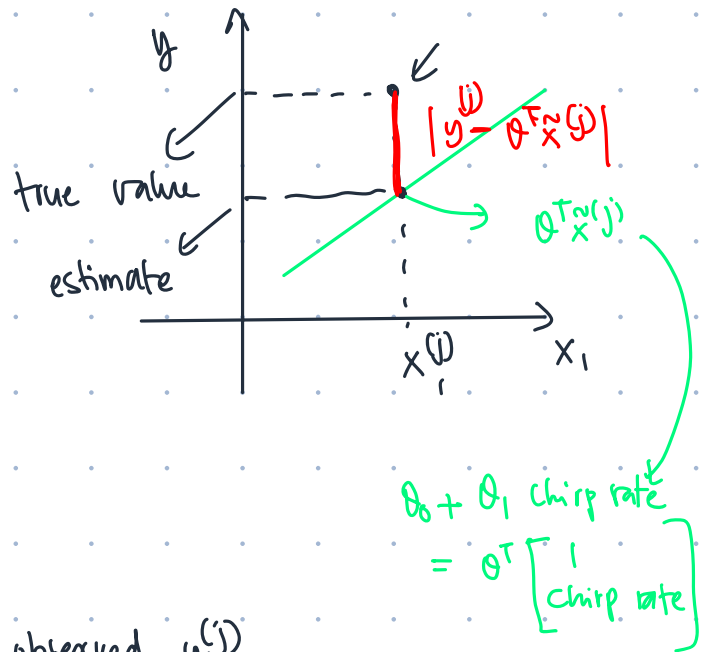 y
|y^(j) - θ^T x̃^(j)|
true value
θ^T x̃^(j)
estimate
x_1^(j)
x_1
θ_0 + θ_1 chirp rate
= θ^T [1
chirp rate]
observed y^(j)